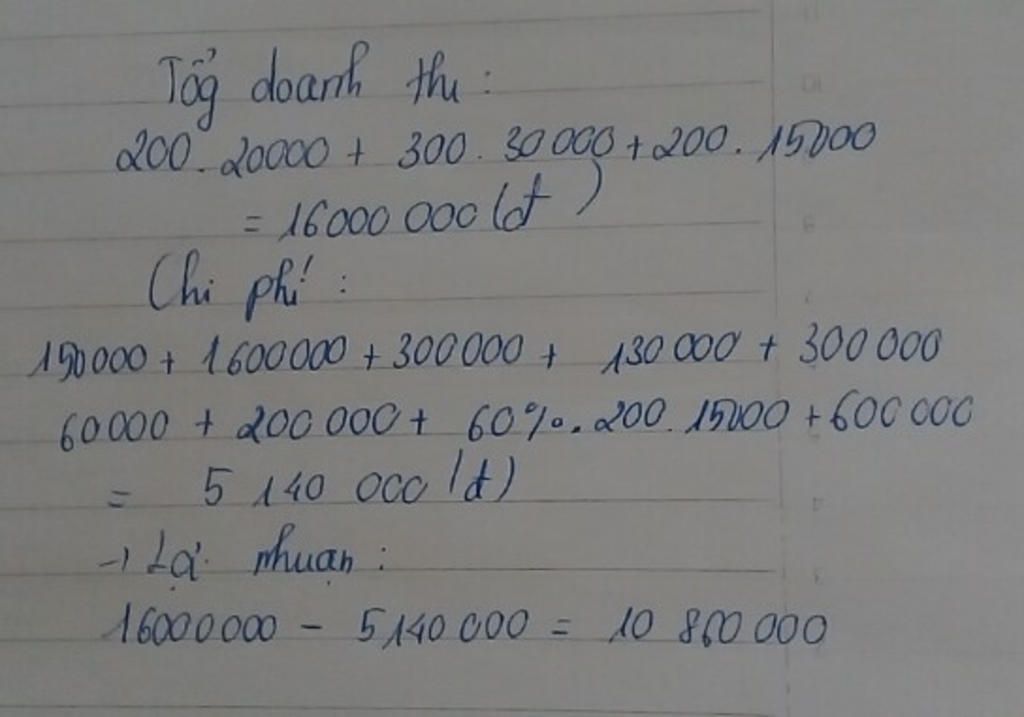 Tổg doanh thu :
200 . 20000 + 300 . 30 000 + 200 . 15000
= 16000 000 (đ)
Chi phí :
150000 + 1600000 + 300000 + 130 000 + 300 000
60000 + 200 000 + 60% . 200 . 15000 + 600 000
= 5 140 000 (đ)
→ Lợi nhuận :
16000000 - 5140 000 = 10 860 000